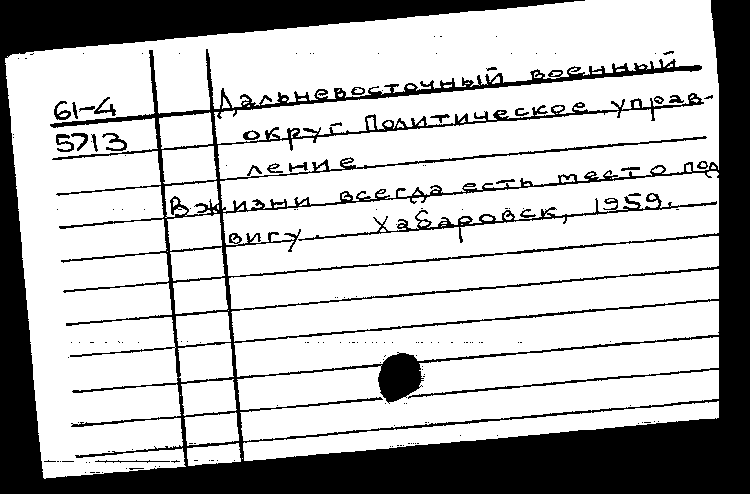 61-4 Дальневосточный военный
5713 округ. Политическое управ-
ление.
В жизни всегда есть место под
вигу. Хабаровск, 1959.